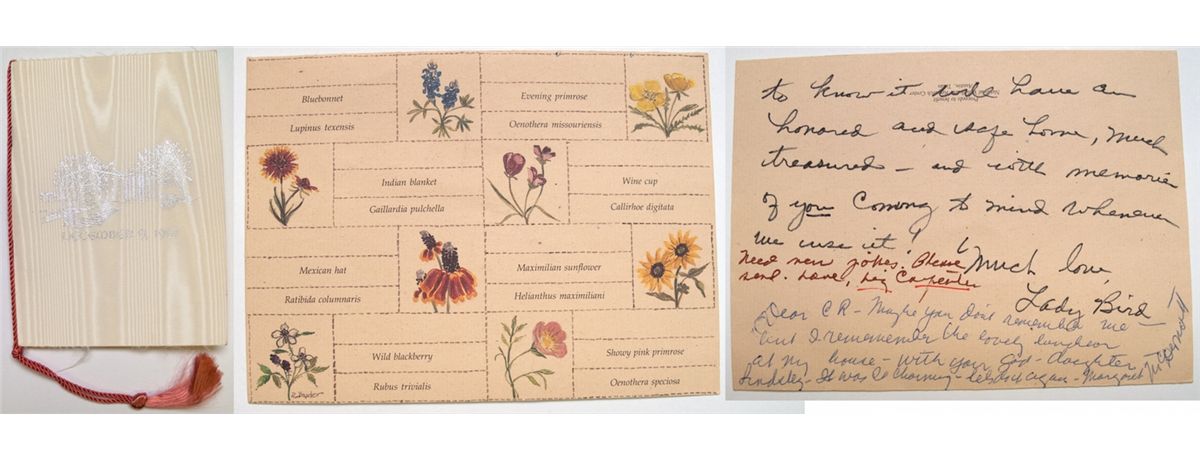 DECEMBER 9, 19
Bluebonnet
Lupinus texensis
Evening primrose
Oenothera missouriensis
Indian blanket
Gaillardia pulchella
Wine cup
Callirhoe digitata
Mexican hat
Ratibida columnaris
Maximilian sunflower
Helianthus maximiliani
Wild blackberry
Rubus trivialis
Showy pink primrose
Oenothera speciosa
to know it will have an
honored and safe home, much
treasured – and with memories
of you coming to mind whenever
we use it!
Much love,
Lady Bird
Need new jokes. Please
send. Love, Liz Carpenter
Dear C R – Maybe you don't remember me –
but I rememember the lovely luncheon
at my house – with your God-daughter
Lindsley – It was so charming – Let's do it again – Margaret